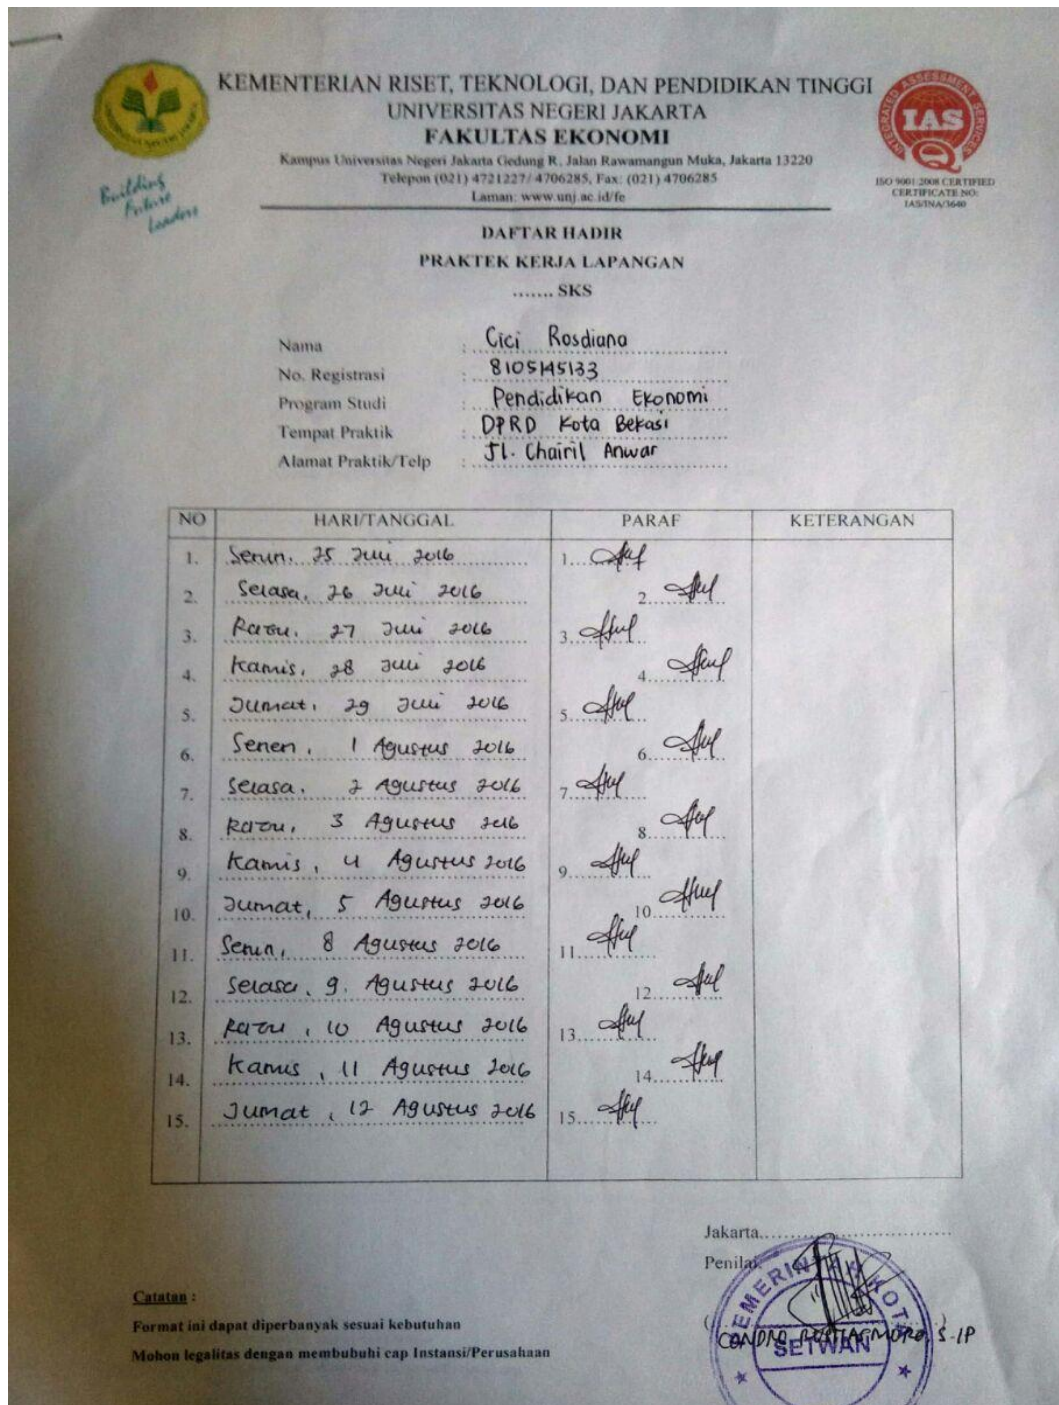 KEMENTERIAN RISET, TEKNOLOGI, DAN PENDIDIKAN TINGGI
UNIVERSITAS NEGERI JAKARTA
FAKULTAS EKONOMI
Kampus Universitas Negeri Jakarta Gedung R, Jalan Rawamangun Muka, Jakarta 13220
Telepon (021) 4721227/ 4706285, Fax: (021) 4706285
Laman: www.unj.ac.id/fe
Building
Future
Leaders
INTEGRATED ASSESSMENT SERVICES
IAS
ISO 9001:2008 CERTIFIED
CERTIFICATE NO:
IAS/INA/3640
DAFTAR HADIR
PRAKTEK KERJA LAPANGAN
....... SKS
Nama : Cici Rosdiana
No. Registrasi : 8105145133
Program Studi : Pendidikan Ekonomi
Tempat Praktik : DPRD Kota Bekasi
Alamat Praktik/Telp : Jl. Chairil Anwar
NO HARI/TANGGAL PARAF KETERANGAN
1. Senin, 25 Juli 2016 1.
2. Selasa, 26 Juli 2016 2.
3. Rabu, 27 Juli 2016 3.
4. Kamis, 28 Juli 2016 4.
5. Jumat, 29 Juli 2016 5.
6. Senen, 1 Agustus 2016 6.
7. Selasa, 2 Agustus 2016 7.
8. Rabu, 3 Agustus 2016 8.
9. Kamis, 4 Agustus 2016 9.
10. Jumat, 5 Agustus 2016 10.
11. Senin, 8 Agustus 2016 11.
12. Selasa, 9. Agustus 2016 12.
13. Rabu, 10 Agustus 2016 13.
14. Kamis, 11 Agustus 2016 14.
15. Jumat, 12 Agustus 2016 15.
Jakarta
Penilai
PEMERINTAH KOTA
SETWAN
S.IP
Catatan :
Format ini dapat diperbanyak sesuai kebutuhan
Mohon legalitas dengan membubuhi cap Instansi/Perusahaan